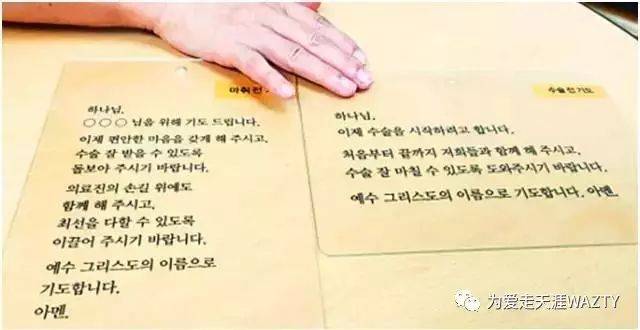 마취 전
하나님,
○○○ 님을 위해 기도 드립니다.
이제 편안한 마음을 갖게 해 주시고,
수술 잘 받을 수 있도록
돌보아 주시기 바랍니다.
의료진의 손길 위에도
함께 해 주시고,
최선을 다할 수 있도록
이끌어 주시기 바랍니다.
예수 그리스도의 이름으로
기도합니다.
아멘.
수술 전 기도
하나님,
이제 수술을 시작하려고 합니다.
처음부터 끝까지 저희들과 함께 해 주시고,
수술 잘 마칠 수 있도록 도와주시기 바랍니다.
예수 그리스도의 이름으로 기도합니다. 아멘.
为爱走天涯WAZTY